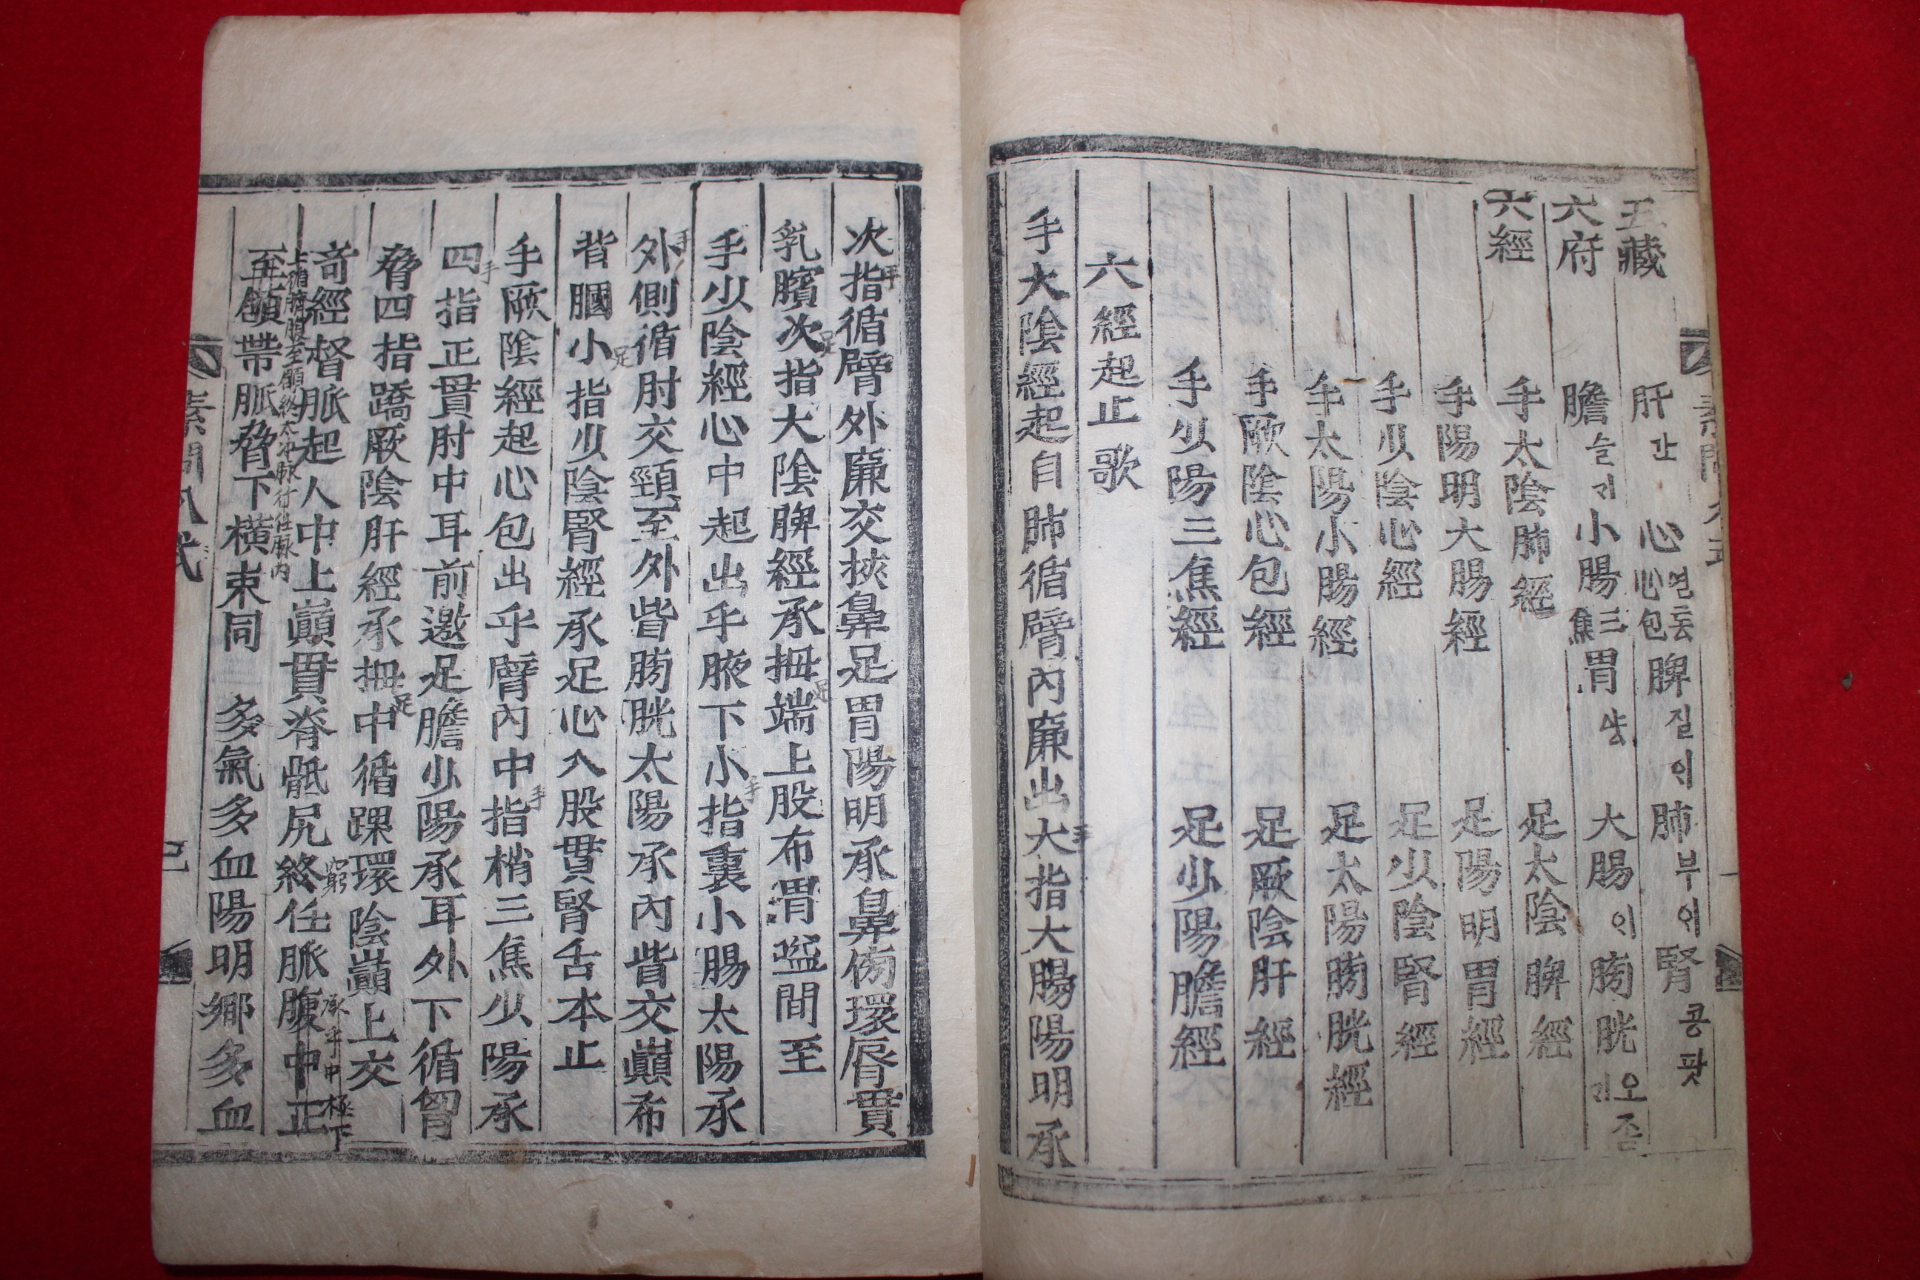 五藏 肝 간 心 염통 心包 脾 질이 肺 부이 腎 콩팟
六府 膽 슬기 小腸 三焦 胃 양 大腸 이 膀胱 오좀기
六經 手太陰肺經 足太陰脾經
手陽明大腸經 足陽明胃經
手少陰心經 足少陰腎經
手太陽小腸經 足太陽膀胱經
手厥陰心包經 足厥陰肝經
手少陽三焦經 足少陽膽經
六經起止歌
手太陰經起自肺循臂內廉出大手指大腸陽明承
次指手循臂外廉交挾鼻足胃陽明承鼻傍環唇貫
乳臍次足指大陰脾經承拇端足上股布胃監間至
手少陰經心中起出乎腋下小手指裏小腸太陽承
手外側循肘交頸至外眥膀胱太陽承內眥交巔布
背膕小足指少陰腎經承足心入股貫腎舌本止
手厥陰經起心包出乎臂內中手指梢三焦少陽承
四手指正貫肘中耳前邀足膽少陽承耳外下循胷
脅四指蹻厥陰肝經承拇足中循踝環陰巔上交
奇經督脈起人中上巔貫脊骶尻終窮任脈腹中正承乎中極下
上循臍腹至頤終太冲脈行任脈內
至頷帶脈脅下橫束同 多氣多血陽明鄉多血
素問八式